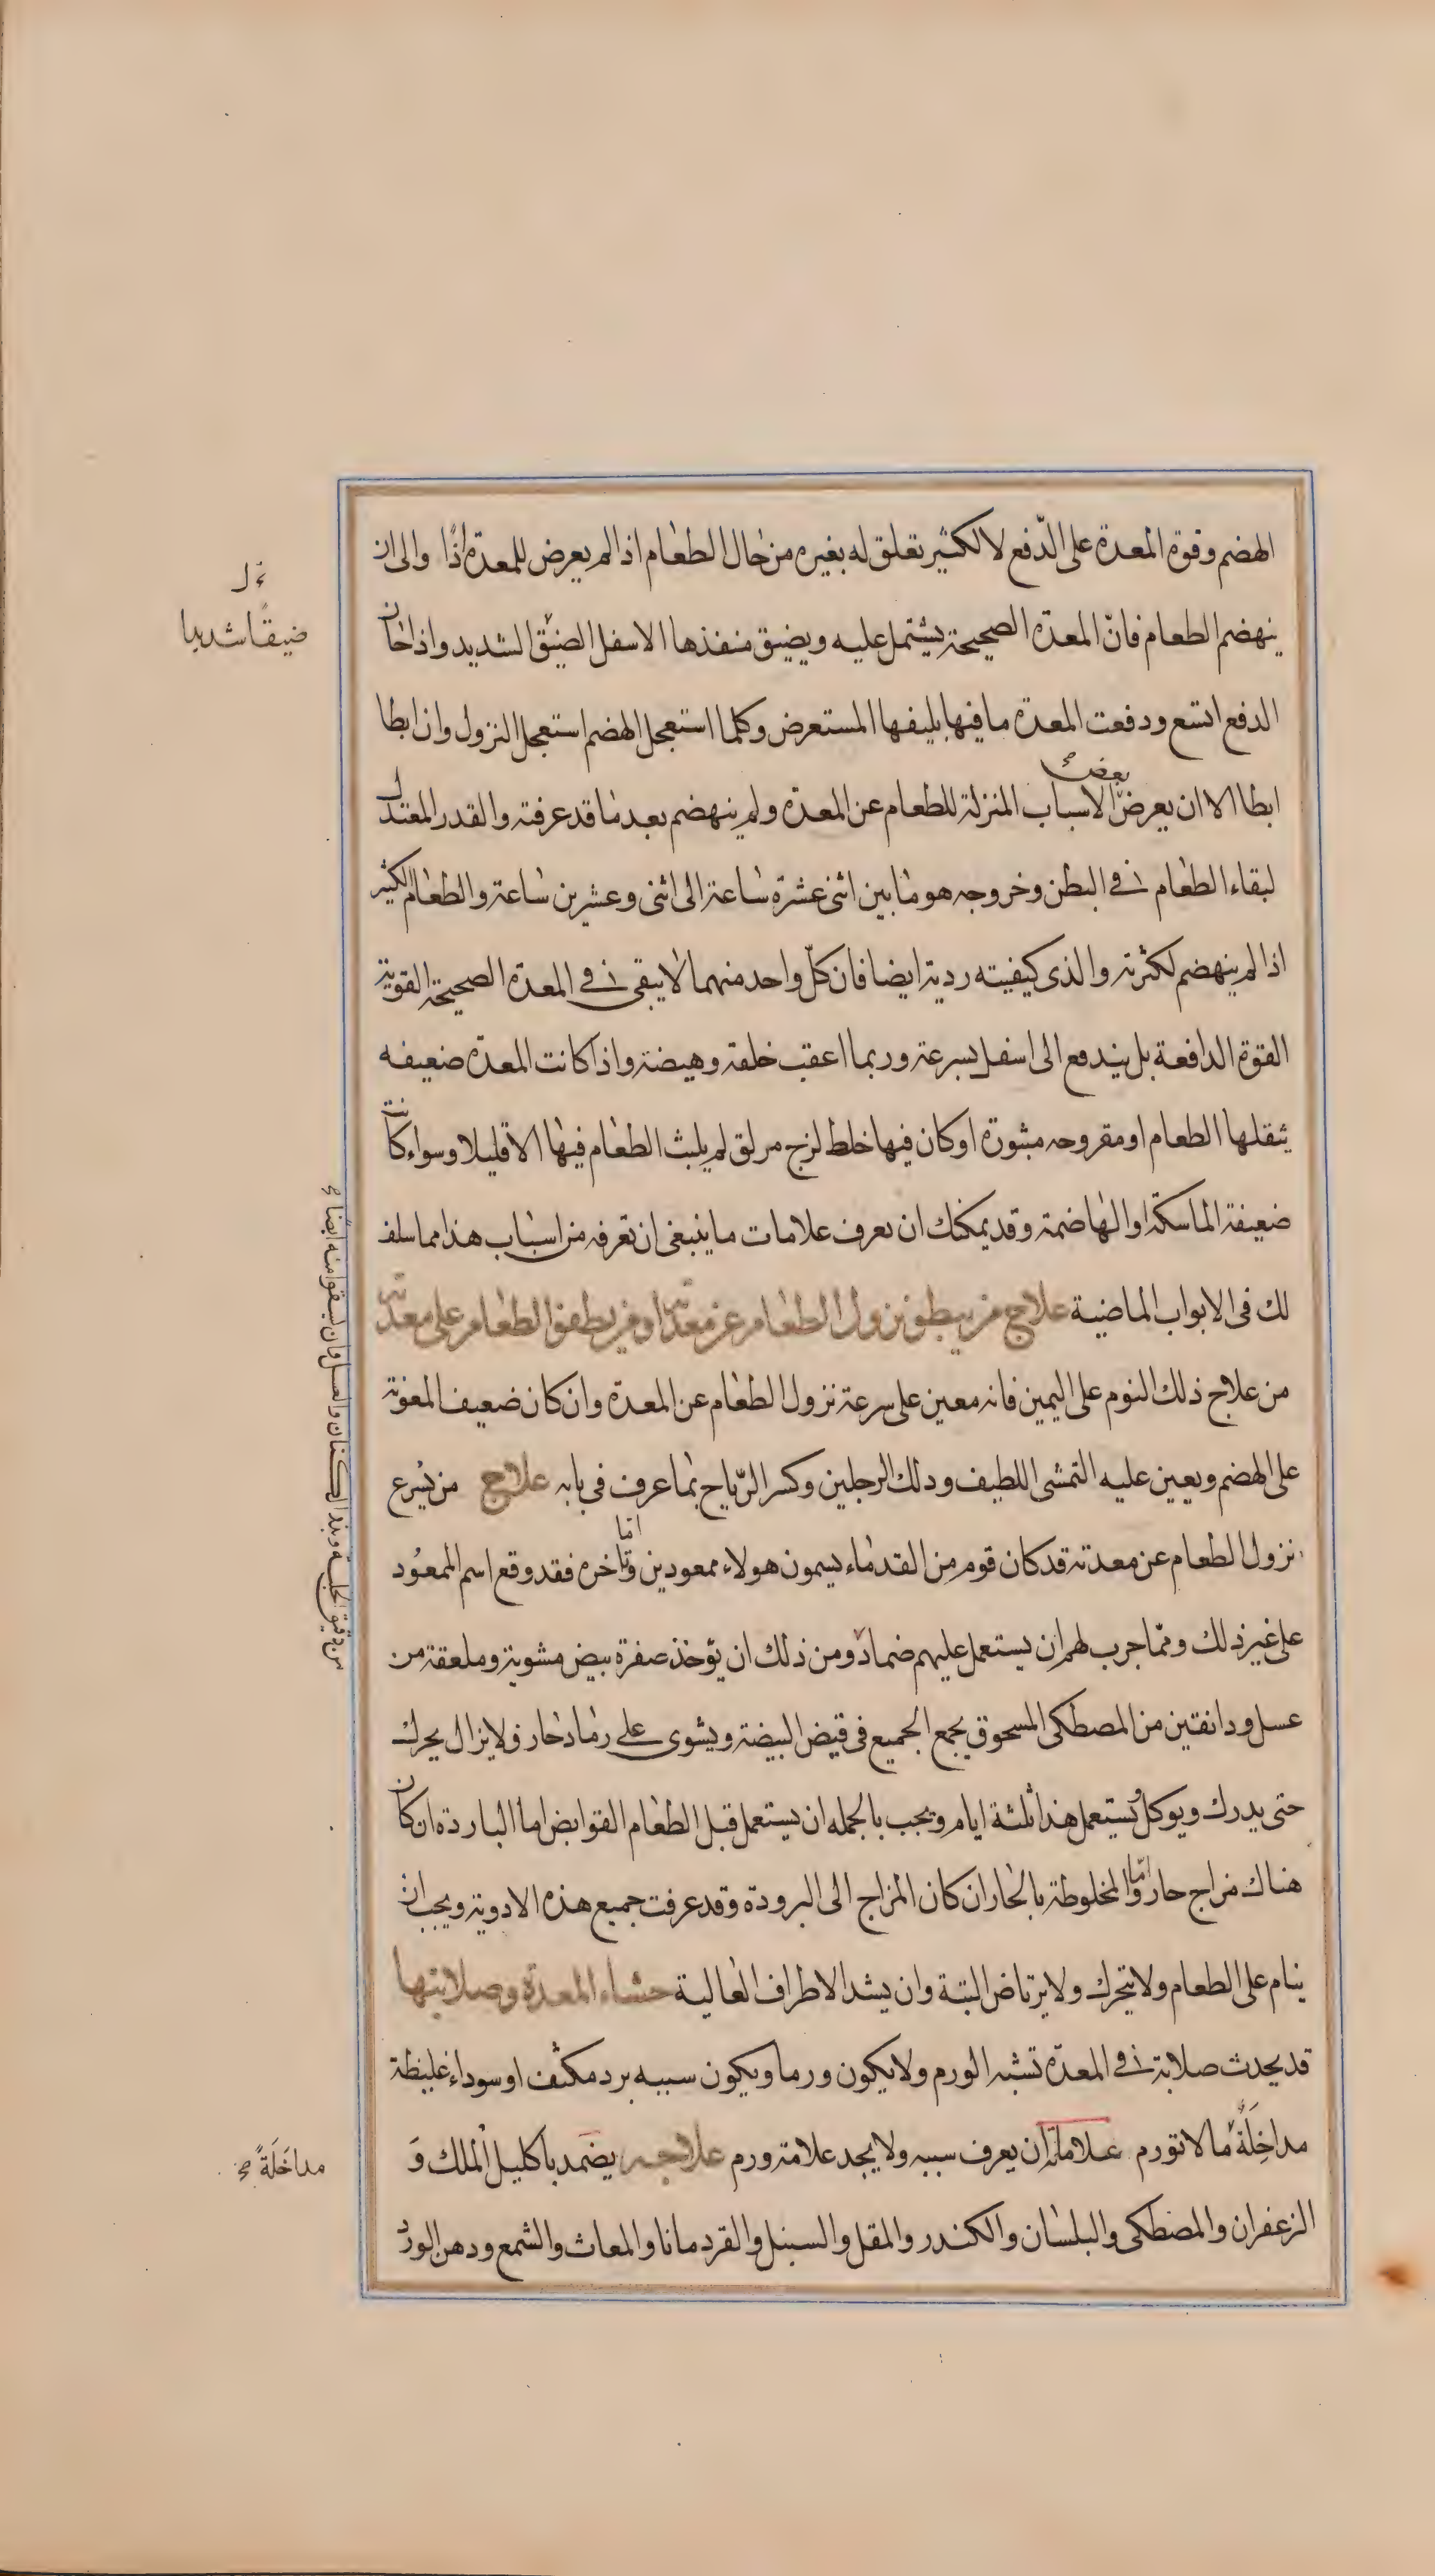 الهضم وقوة المعدة على الدّفع لا لكثير تعلق له بغيره من حال الطعام اذا لم يعرض للمعدة اذًا والى ان
ينهضم الطعام فانّ المعدة الصحيحة يشتمل عليه ويضيق منفذها الاسفل الضيّق الشديد واذا خان
الدفع اتسع ودفعت المعدة ما فيها بليفها المستعرض وكلما استعجل الهضم استعجل النزول وان ابطا
ابطا الا ان يعرض بعض الاسباب المنزلة للطعام عن المعدة ولم ينهضم بعد ما قد عرفته والقدر المعتدل
لبقاء الطعام فى البطن وخروجه هو ما بين اثنى عشرة ساعة الى اثنى وعشرين ساعة والطعام الكثير
اذا لم ينهضم لكثرته والذى كيفيته ردية ايضا فان كلّ واحد منهما لا يبقى فى المعدة الصحيحة القوية
القوة الدافعة بل يندفع الى اسفل بسرعة وربما اعقب خلفة وهيضة واذا كانت المعدة ضعيفه
يثقلها الطعام او مقروحه مبثورة او كان فيها خلط لزج مزلق لم يلبث الطعام فيها الا قليلا وسواء كانت
ضعيفة الماسكة او الهاضمة وقد يمكنك ان يعرف علامات ما ينبغى ان تعرفه من اسباب هذا مما سلف
لك فى الابواب الماضية علاج من يبطؤ نزول الطعام عن معدته او من يطفو الطعام على معدته
من علاج ذلك النوم على اليمين فانه معين على سرعة نزول الطعام عن المعدة وان كان ضعيف المعونة
على الهضم ويعين عليه التمشى اللطيف ودلك الرجلين وكسر الرّياح بما عرف فى بابه علاج من يسرع
نزول الطعام عن معدته قد كان قوم من القدماء يسمون هولاء ممعودين واما تاخره فقد وقع اسم الممعود
على غير ذلك ومما جرب لهم ان يستعمل عليهم ضمادًا ومن ذلك ان يؤخذ صفرة بيض مشوية وملعقة من
عسل ودانقتين من المصطكى المسحوق يجمع الجميع فى قيض البيضة ويشوى على رماد حار ولا يزال يحرك
حتى يدرك ويوكل ويستعمل هذا ثلثة ايام ويجب بالجمله ان يستعمل قبل الطعام القوابض اما الباردة ان كان
هناك مزاج حار وامّا المخلوطة بالحار ان كان المزاج الى البرودة وقد عرفت جميع هذه الادوية ويجب ان
ينام على الطعام ولا يتحرك ولا يرتاض البتة وان يشد الاطراف العالية حشاء المعدة وصلابتها
قد يحدث صلابة فى المعدة تشبه الورم ولا يكون ورما ويكون سببه برد مكثف او سوداء غليظة
مداخِلَةٌ ما لا تورم علاماته ان يعرف سببه ولا يجد علامة ورم علاجه يضمد باكليل الملك وَ
الزعفران والمصطكى والبلسان والكندر والمقل والسنبل والقردمانا والمعاث والشمع ودهن الورد
ضيقًا شديدا
من دقيق الحلبة وبذر الكتان والعسل وان يسقوا منه ايضًا
مداخَلَةً صح